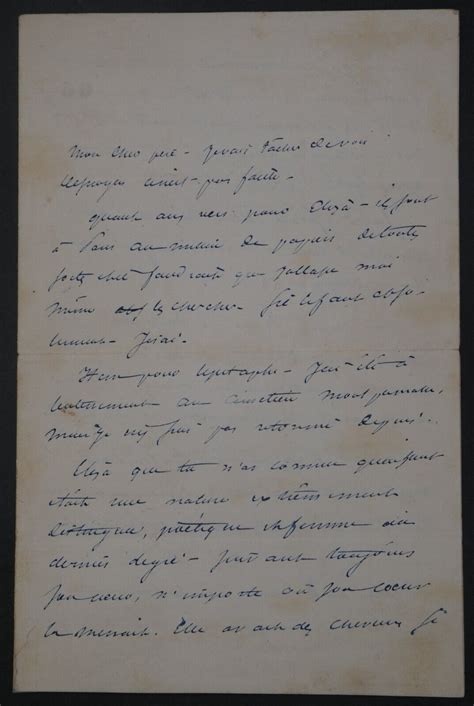 Mon cher père – je vais tacher de voir
n'est pas facile –
quant aux vers pour Eliza – ils sont
à Paris au milieu de papiers de toute
sorte, il faudrait que j'allasse moi
même les chercher. S'il le faut abso-
lument – J'irai –
pour l'épitaphe – J'ai été à
l'enterrement au cimetière Montparnasse,
mais je n'y suis pas retourné depuis.
Eliza que tu n'as connue qu'enfant
était une nature extrêmement
distinguée, poétique et femme au
dernier degré – suivant toujours
son cœur, n'importe où son cœur
la menait. Elle avait des cheveux si